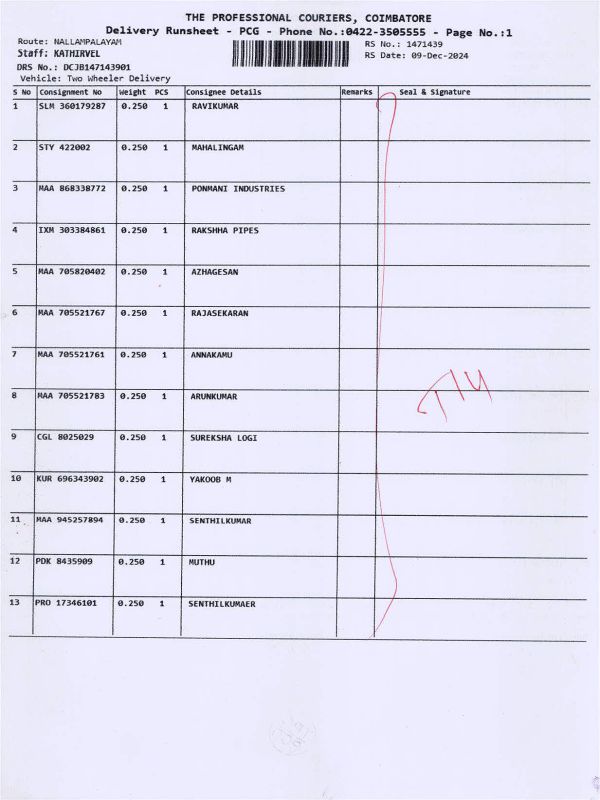 THE PROFESSIONAL COURIERS, COIMBATORE
Delivery Runsheet - PCG - Phone No.:0422-3505555 - Page No.:1
Route: NALLAMPALAYAM RS No.: 1471439
Staff: KATHIRVEL RS Date: 09-Dec-2024
DRS No.: DCJB147143901
Vehicle: Two Wheeler Delivery
S No Consignment No Weight PCS Consignee Details Remarks Seal & Signature
1 SLM 360179287 0.250 1 RAVIKUMAR
2 STY 422002 0.250 1 MAHALINGAM
3 MAA 868338772 0.250 1 PONMANI INDUSTRIES
4 IXM 303384861 0.250 1 RAKSHHA PIPES
5 MAA 705820402 0.250 1 AZHAGESAN
6 MAA 705521767 0.250 1 RAJASEKARAN
7 MAA 705521761 0.250 1 ANNAKAMU
8 MAA 705521783 0.250 1 ARUNKUMAR
9 CGL 8025029 0.250 1 SUREKSHA LOGI
10 KUR 696343902 0.250 1 YAKOOB M
11 MAA 945257894 0.250 1 SENTHILKUMAR
12 PDK 8435909 0.250 1 MUTHU
13 PRO 17346101 0.250 1 SENTHILKUMAER